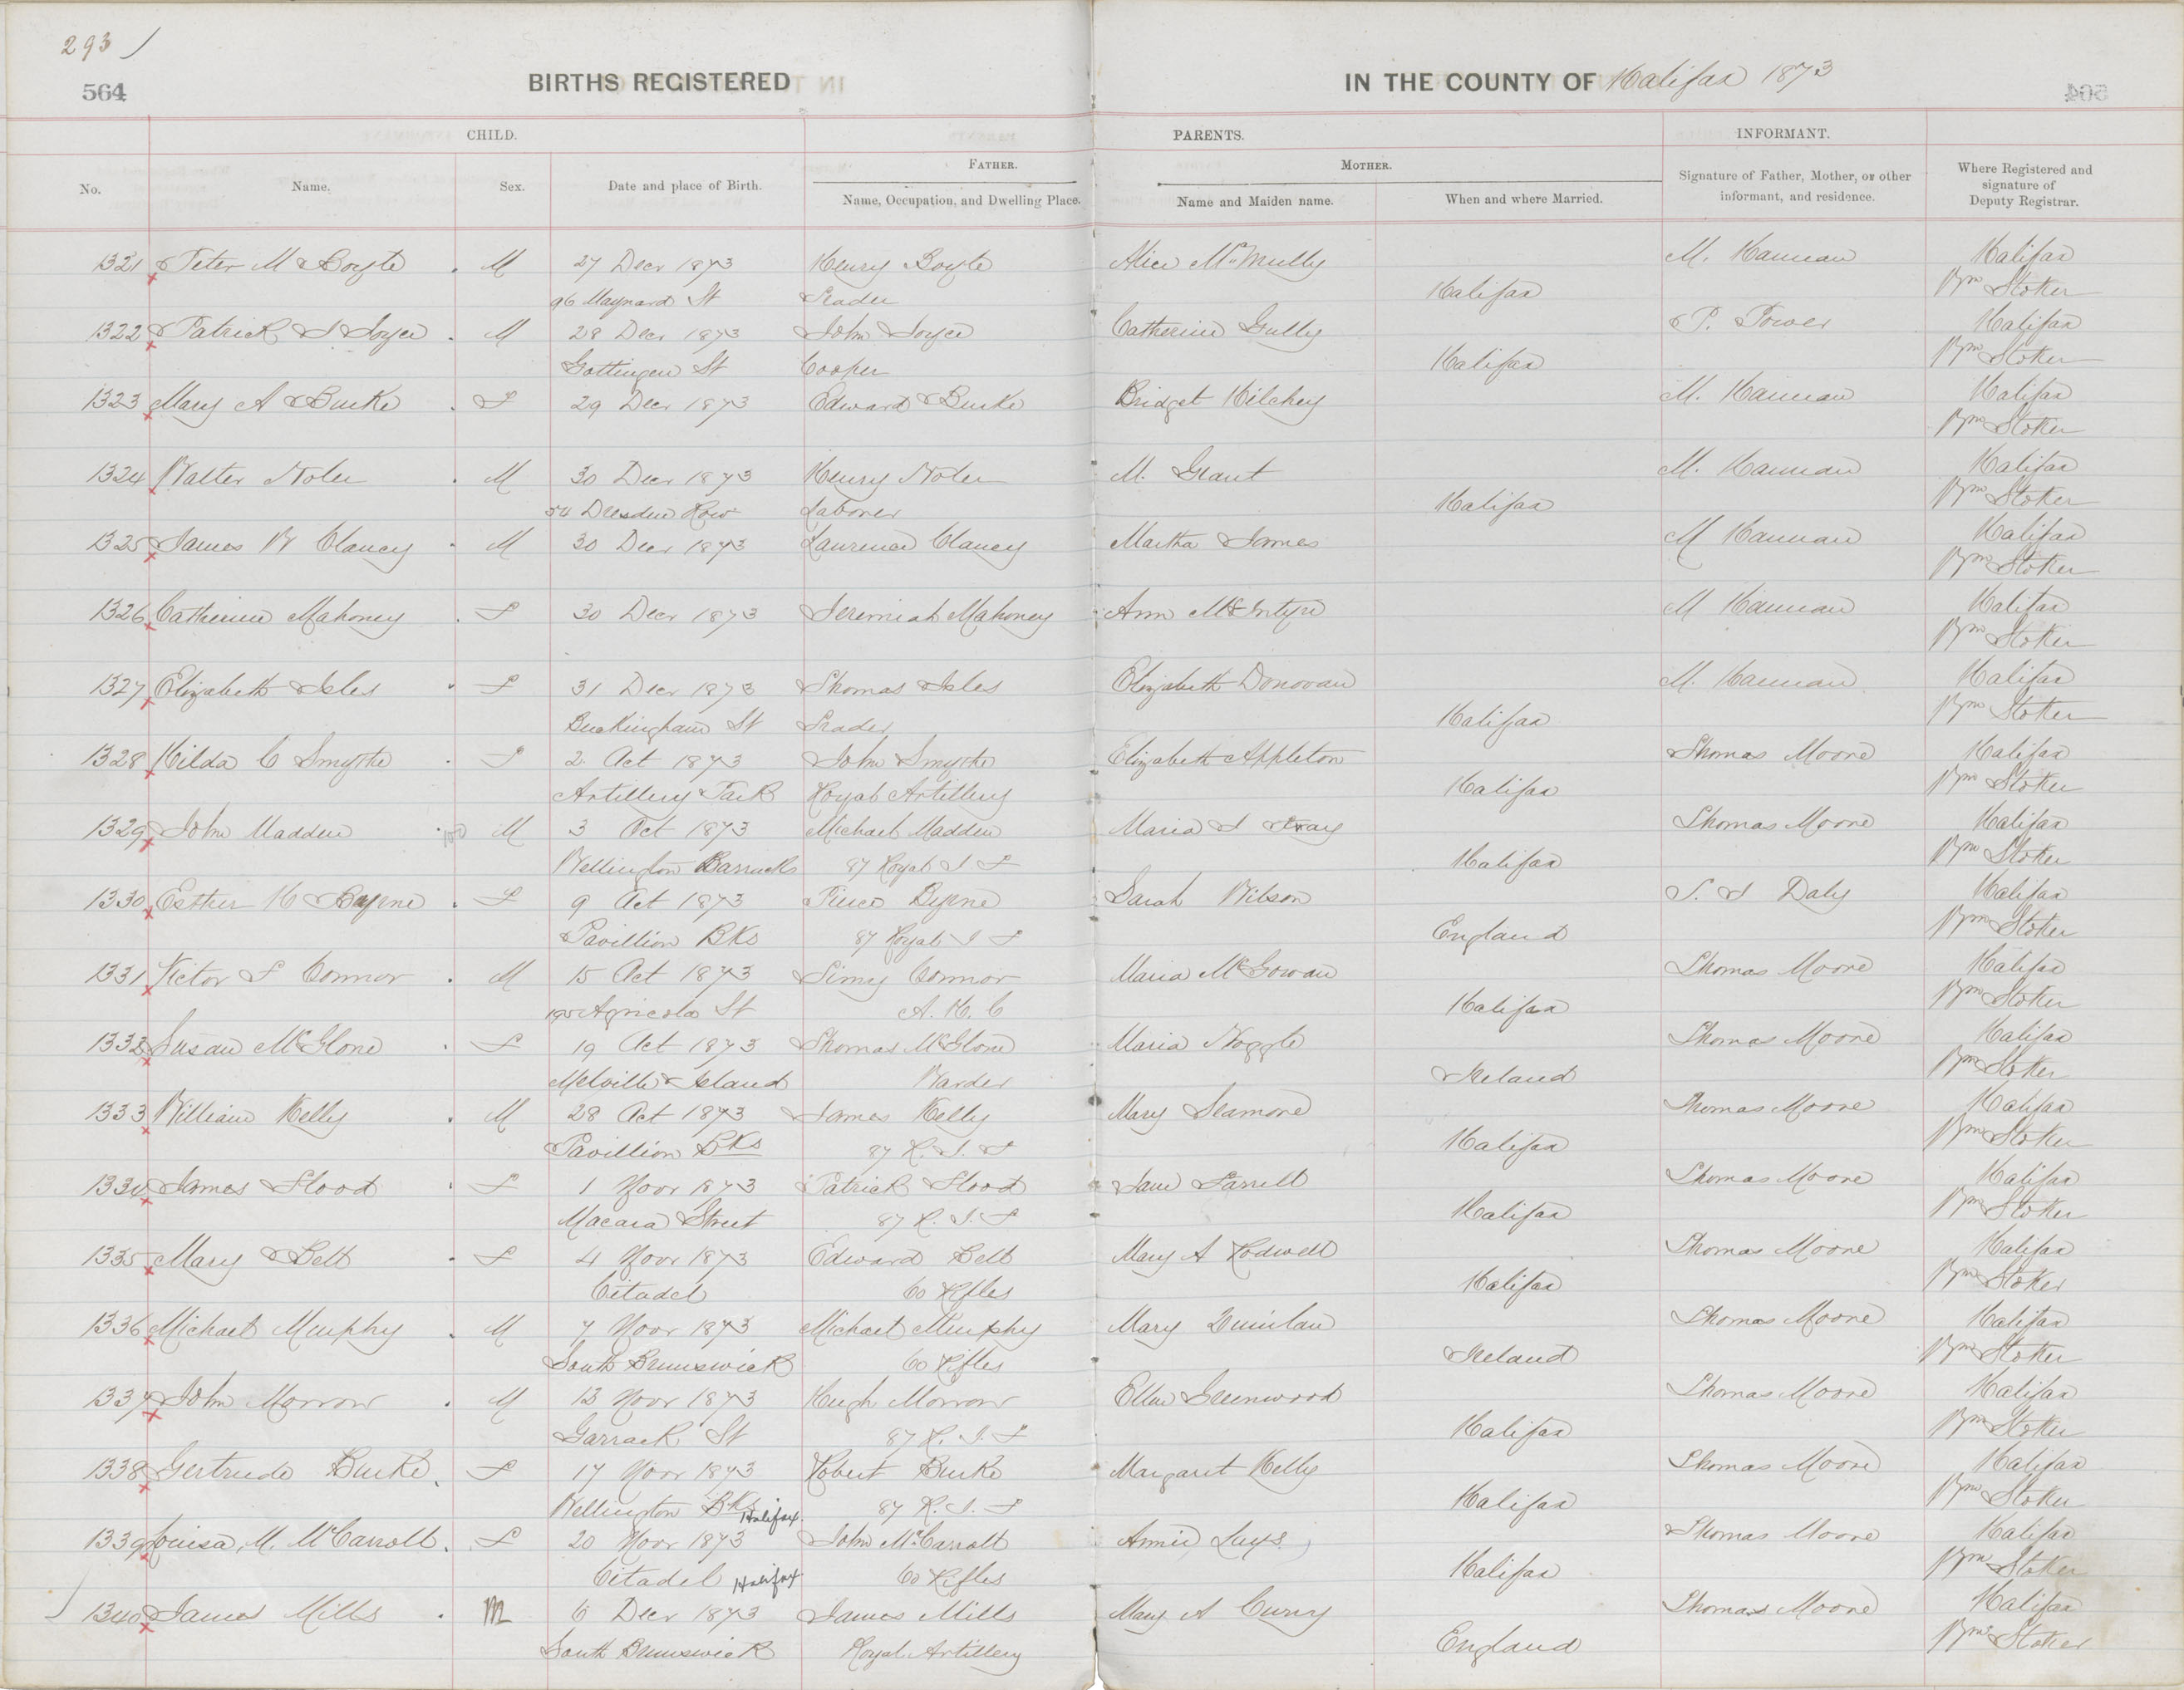 293
564
BIRTHS REGISTERED
IN THE COUNTY OF Halifax 1873
CHILD.
PARENTS.
INFORMANT.
No.
Name.
Sex.
Date and place of Birth.
FATHER.
Name, Occupation, and Dwelling Place.
MOTHER.
Name and Maiden name.
When and where Married.
Signature of Father, Mother, or other informant, and residence.
Where Registered and signature of Deputy Registrar.
1321 Peter M Boyle M 27 Decr 1873 Henry Boyle Alice McNully M. Hannan Halifax
96 Maynard St Trader Halifax Wm Stoker
1322 Patrick J Joyce M 28 Decr 1873 John Joyce Catherine Gully P. Power Halifax
Gottingen St Cooper Halifax Wm Stoker
1323 Mary A Burke F 29 Decr 1873 Edward Burke Bridget Hilchey M. Hannan Halifax
Wm Stoker
1324 Walter Nolen M 30 Decr 1873 Henry Nolen M. Grant M. Hannan Halifax
54 Dresden Row Laborer Halifax Wm Stoker
1325 James W Clancy M 30 Decr 1873 Laurence Clancy Martha James M Hannan Halifax
Wm Stoker
1326 Catherine Mahoney F 30 Decr 1873 Jeremiah Mahoney Ann McIntyre M Hannan Halifax
Wm Stoker
1327 Elizabeth Isles F 31 Decr 1873 Thomas Isles Elizabeth Donovan M. Hannan Halifax
Buckingham St Trader Halifax Wm Stoker
1328 Hilda C Smythe F 2 Oct 1873 John Smythe Elizabeth Appleton Thomas Moore Halifax
Artillery Park Royal Artillery Halifax Wm Stoker
1329 John Madden M 3 Oct 1873 Michael Madden Maria J Thomas Moore Halifax
Wellington Barracks 87 Royal I F Halifax Wm Stoker
1330 Esther H Byrne F 9 Oct 1873 Pierce Byrne Sarah Wilson Daly Halifax
Pavillion Bks 87 Royal I F England Wm Stoker
1331 Victor F Connor M 15 Oct 1873 Connor Maria McGowan Thomas Moore Halifax
195 Agricola St A. H. C Halifax Wm Stoker
1332 Susan McGlone F 19 Oct 1873 Thomas McGlone Maria Noggle Thomas Moore Halifax
Melville Island Warder Ireland Wm Stoker
1333 William Kelly M 28 Oct 1873 James Kelly Mary Seamore Thomas Moore Halifax
Pavillion Bks 87 R. I. F Halifax Wm Stoker
1334 James Flood F 1 Novr 1873 Patrick Flood Jane Farrell Thomas Moore Halifax
Macara Street 87 R. I. F Halifax Wm Stoker
1335 Mary E Bell F 4 Novr 1873 Edward Bell Mary A Rodwell Thomas Moore Halifax
Citadel 60 Rifles Halifax Wm Stoker
1336 Michael Murphy M 7 Novr 1873 Michael Murphy Mary Quinlan Thomas Moore Halifax
South Brunswick 60 Rifles Ireland Wm Stoker
1337 John Morrow M 13 Novr 1873 Hugh Morrow Ellen Greenwood Thomas Moore Halifax
Garrack St 87 R. I. F Halifax Wm Stoker
1338 Gertrude Burke F 17 Novr 1873 Robert Burke Margaret Kelly Thomas Moore Halifax
Wellington Bks Halifax 87 R. I. F Halifax Wm Stoker
1339 Louisa M. McCarroll F 20 Novr 1873 John McCarroll Annie Thomas Moore Halifax
Citadel Halifax 60 Rifles Halifax Wm Stoker
1340 James Mills M 6 Decr 1873 James Mills Mary A Curry Thomas Moore Halifax
South Brunswick Royal Artillery England Wm Stoker